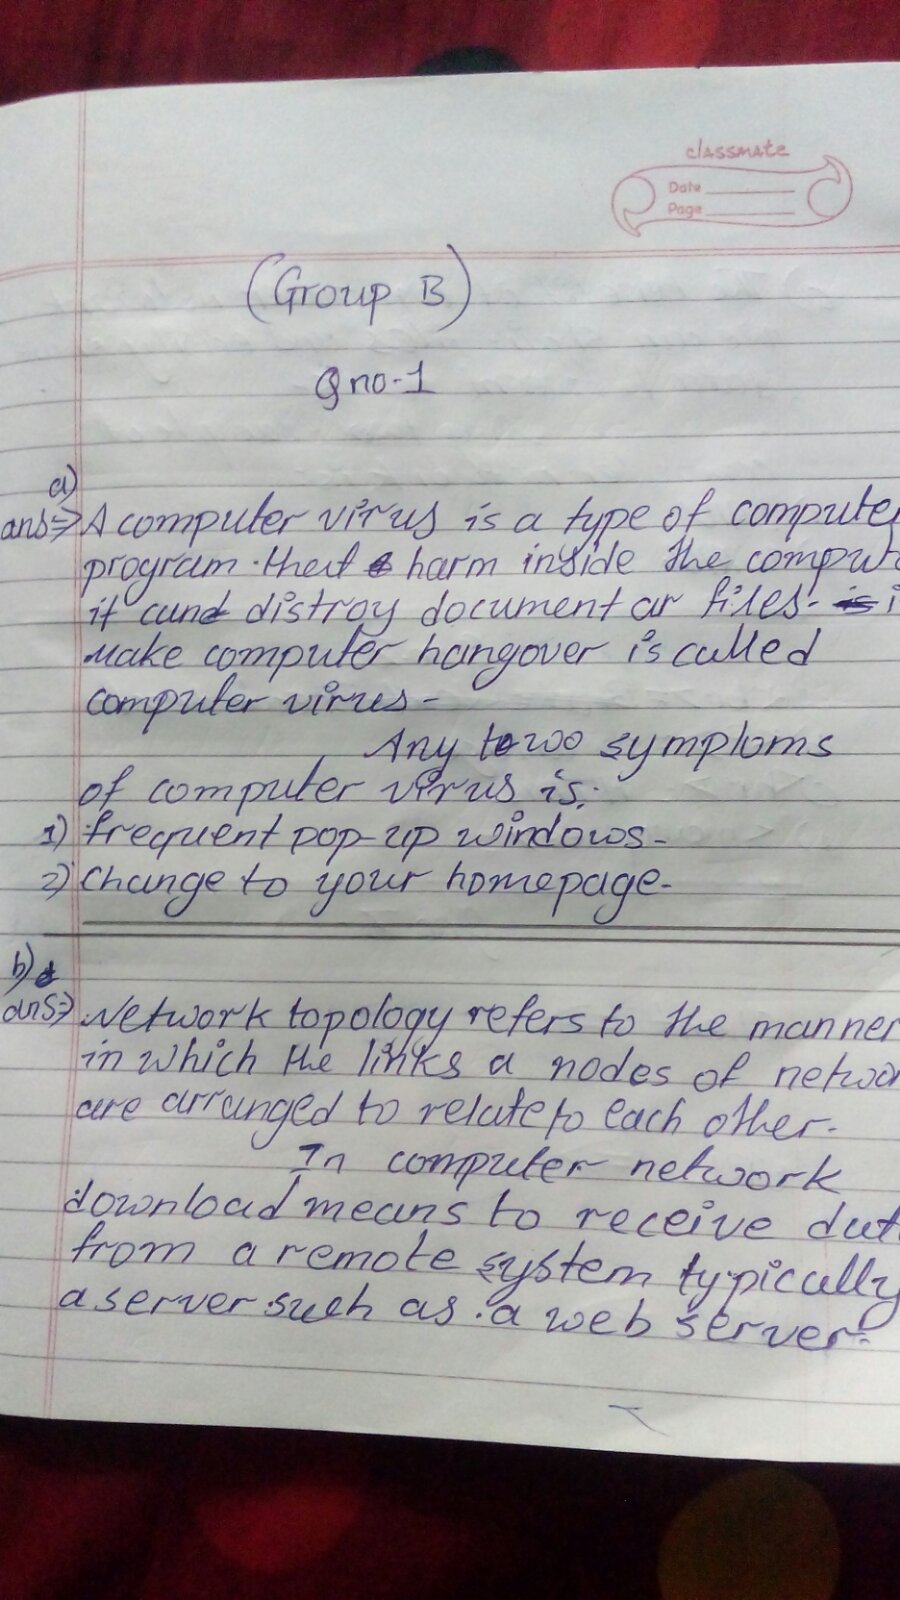 classmate
Date
Page
(Group B)
Q no-1
a)
ans=> A computer virus is a type of compute
program. that harm inside the comput
it can distroy document or files. i
Make computer hangover is called
computer virus-
Any two symptoms
of computer virus is:
1) frequent pop-up windows-
2) Change to your homepage-
b)
ans=> Network topology refers to the manner
in which the links a nodes of networ
are arranged to relate to each other-
In computer network
download means to receive dat
from a remote system typically
a server such as a web server-